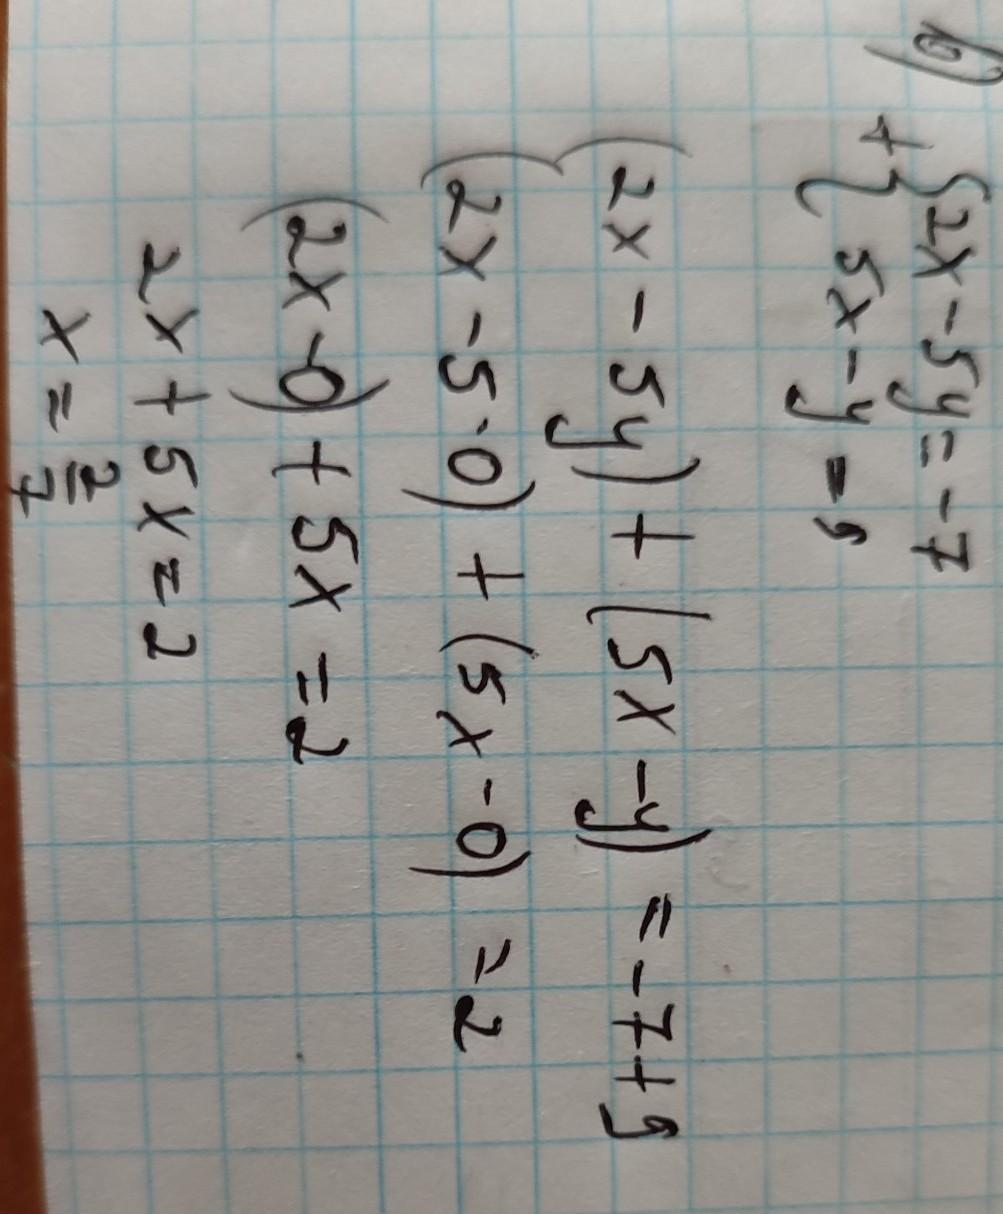 б)
+ { 2x - 5y = -7
{ 5x - y = 9
(2x - 5y) + (5x - y) = -7 + 9
(2x - 5·0) + (5x - 0) = 2
(2x - 0) + 5x = 2
2x + 5x = 2
x = 2/7